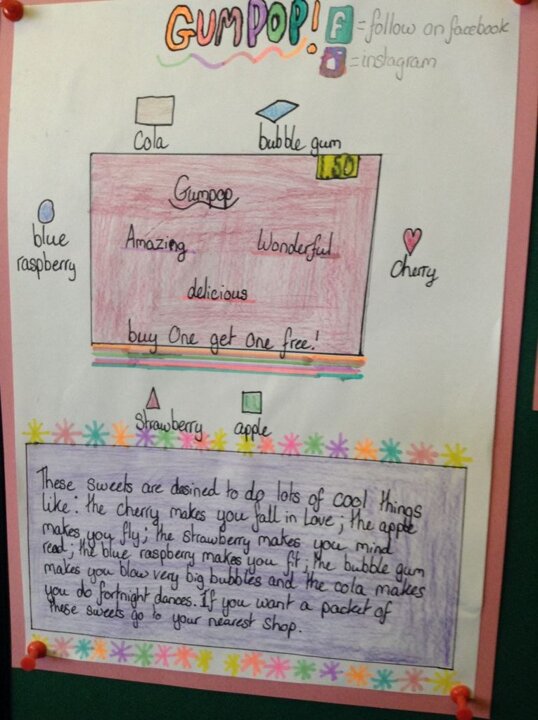 GUMPOP! f = follow on facebook
= instagram
cola bubble gum
1.50
Gumpop
blue raspberry Amazing Wonderful cherry
delicious
buy One get One free!
strawberry apple
These sweets are desined to do lots of cool things
like: the cherry makes you fall in Love; the apple
makes you fly; the strawberry makes you mind
read; the blue raspberry makes you fit; the bubble gum
makes you blow very big bubbles and the cola makes
you do fortnight dances. If you want a packet of
these sweets go to your nearest shop.